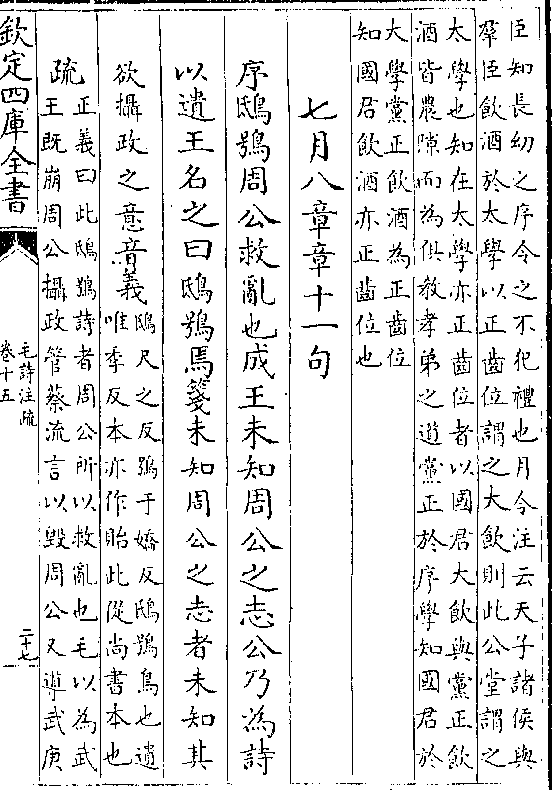 臣知長幼之序令之不犯禮也月令注云天子諸侯與
羣臣飲酒於太學以正齒位謂之大飲則此公堂謂之
太學也知在太學亦正齒位者以國君大飲與黨正飲
酒皆農隙而為俱教孝弟之道黨正於序學知國君於
大學黨正飲酒為正齒位
知國君飲酒亦正齒位也
七月八章章十一句
序鴟鴞周公救亂也成王未知周公之志公乃為詩
以遺王名之曰鴟鴞焉箋未知周公之志者未知其
欲攝政之意音義鴟尺之反鴞于嬌反鴟鴞鳥也遺
唯季反本亦作貽此從尚書本也
疏正義曰此鴟鴞詩者周公所以救亂也毛以為武
王既崩周公攝政管蔡流言以毀周公又導武庚
欽定四庫全書
毛詩注疏
卷十五
二十七